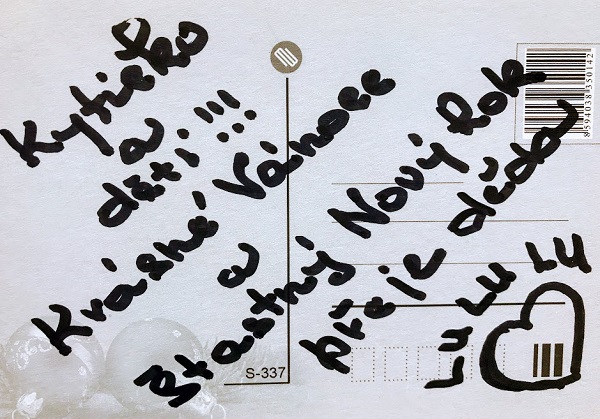 Kytičko
a
děti!!!
Krásné Vánoce
a
Štastný Nový Rok
přeje děda
LU LU LU
S-337
8594038350142